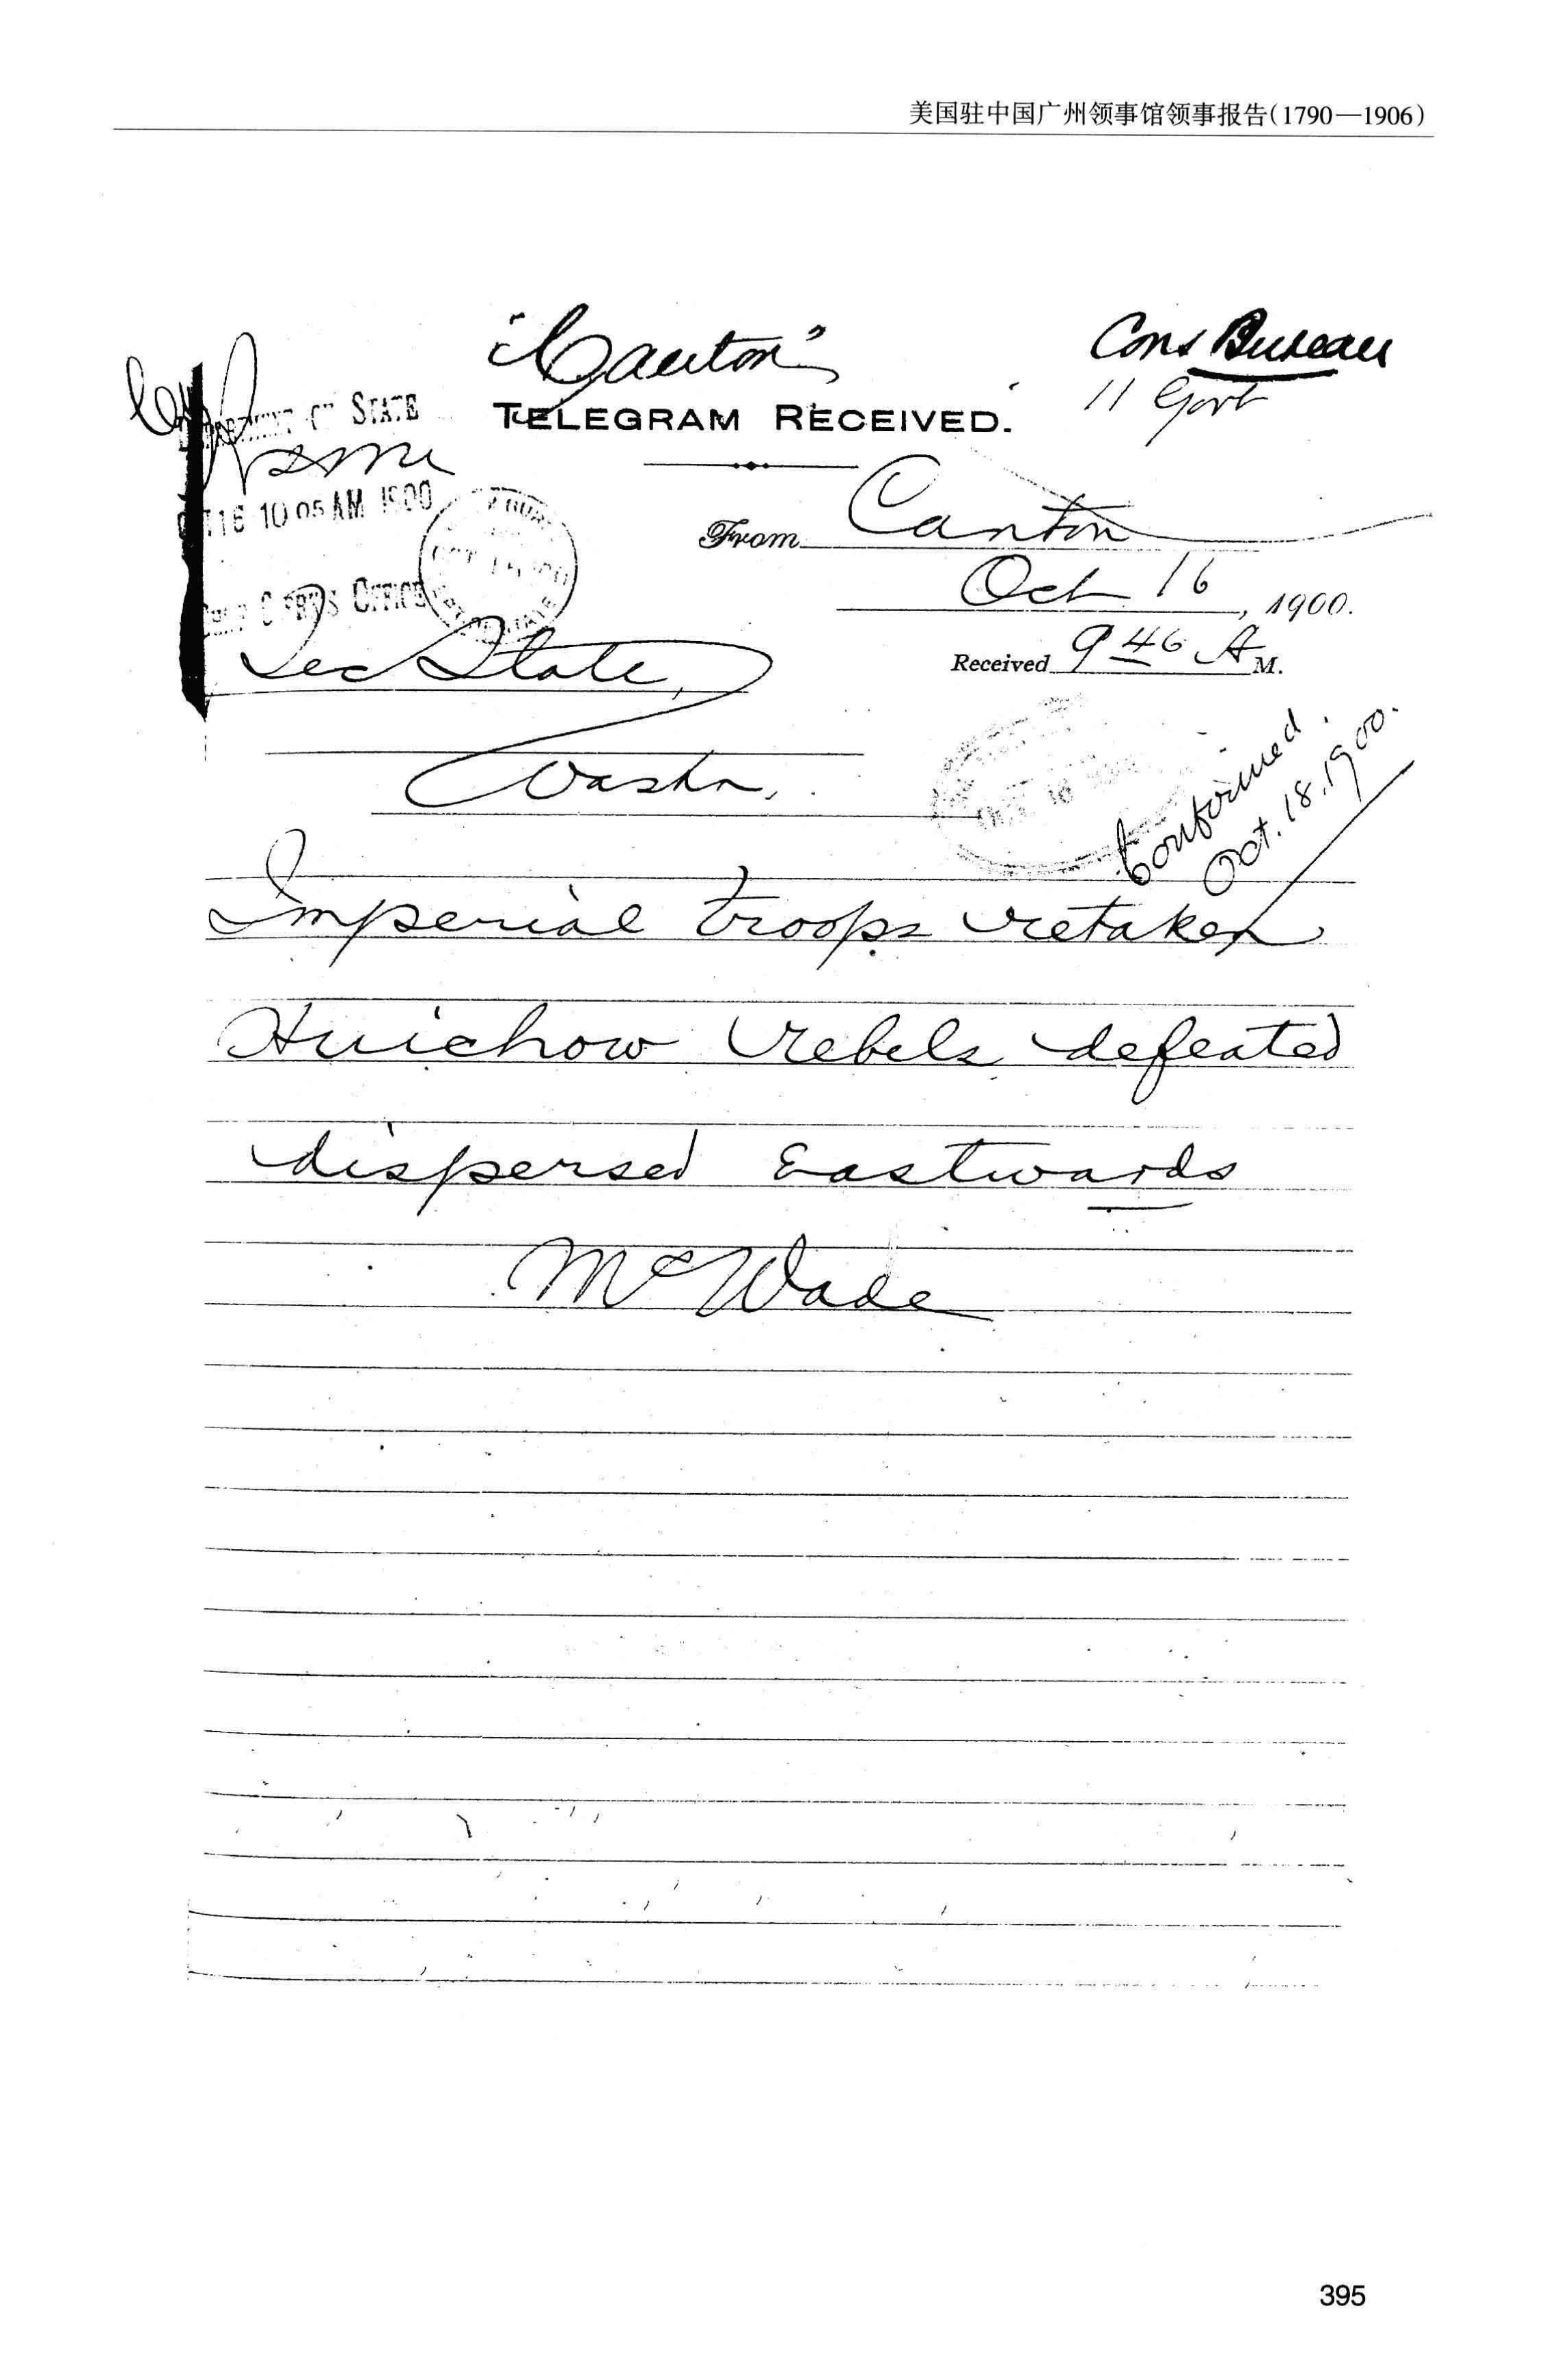 美国驻中国广州领事馆领事报告(1790—1906)
"Canton"
Cons Bureau
11 Govt
TELEGRAM RECEIVED.
DEPARTMENT OF STATE
OCT 16 10 05 AM 1900
CHIEF CLERK'S OFFICE
From Canton
Oct 16, 1900.
Received 9 46 A M.
Sec State,
Washn,
Confirmed.
Oct. 18. 1900.
Imperial troops retaken
Huichow rebels defeated
dispersed Eastwards
McWade
395